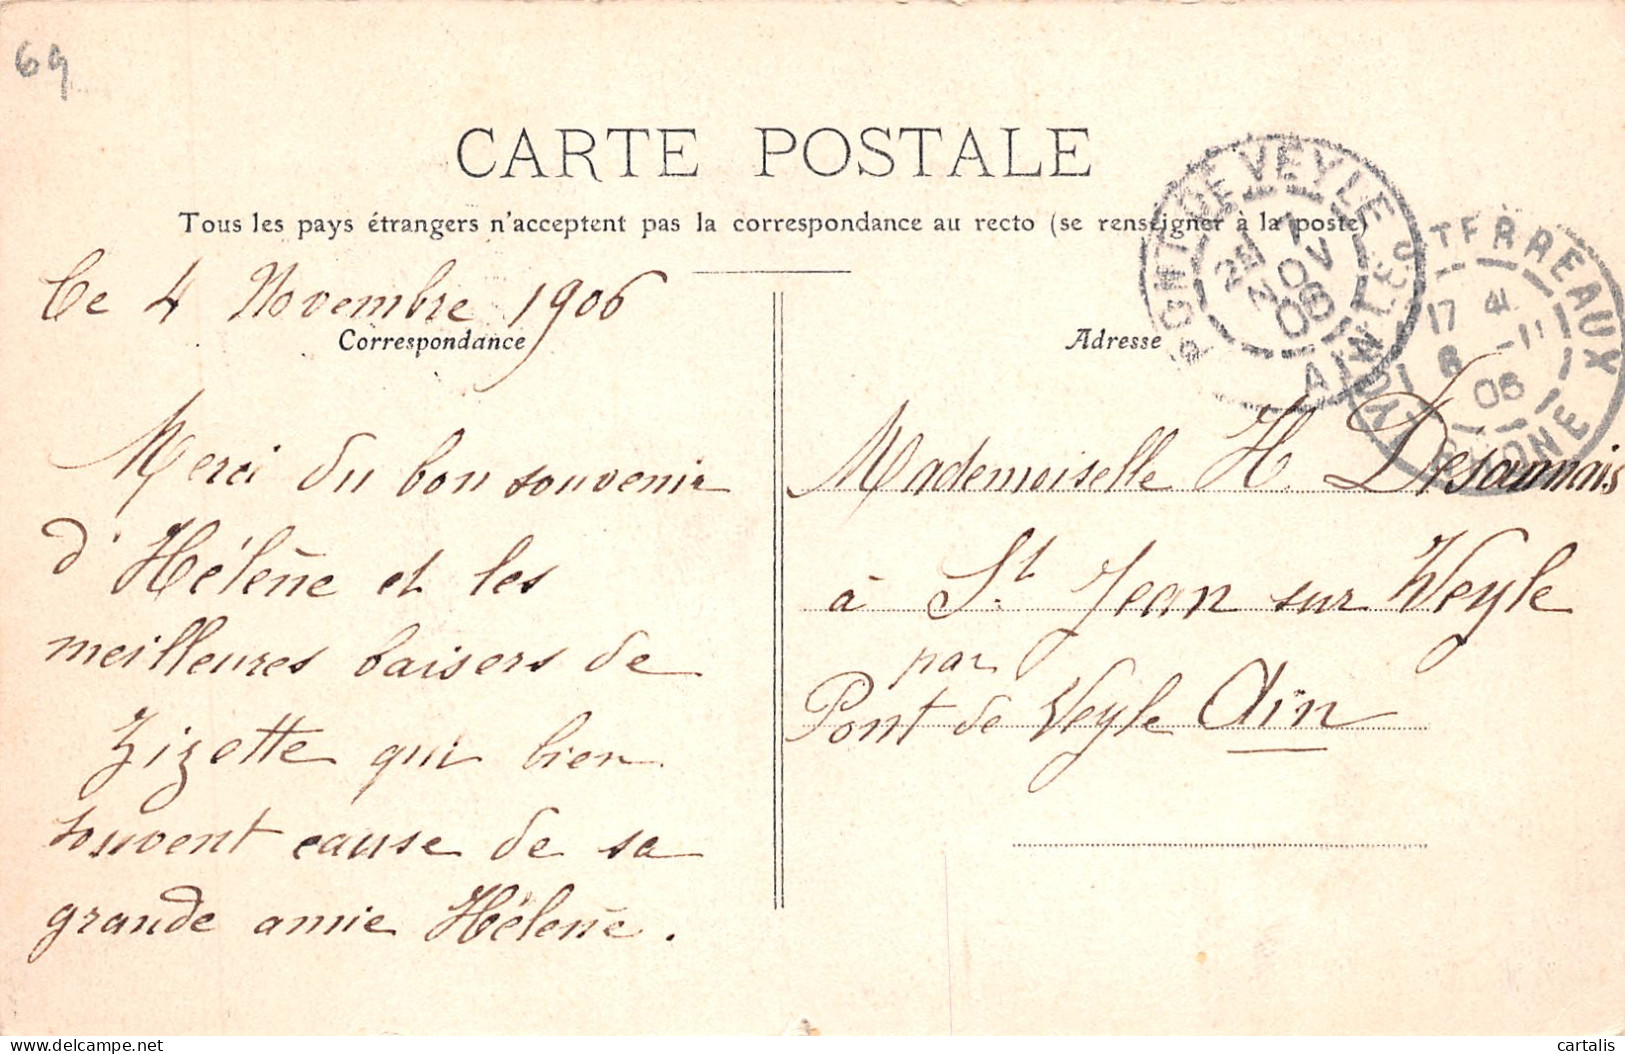 69
CARTE POSTALE
Tous les pays étrangers n'acceptent pas la correspondance au recto (se renseigner à la poste)
Ce 4 Novembre 1906
Correspondance
Merci du bon souvenir
d'Hélène et les
meilleures baisers de
Zizette qui bien
souvent cause de sa
grande amie Hélène.
Adresse
Mademoiselle H. Desaumais
à St. Jean sur Veyle
par
Pont de Veyle Ain
PONT DE VEYLE
AIN
7
NOV
06
LYON LES TERREAUX
17 4
6 -11
06
RHONE
delcampe.net
cartalis